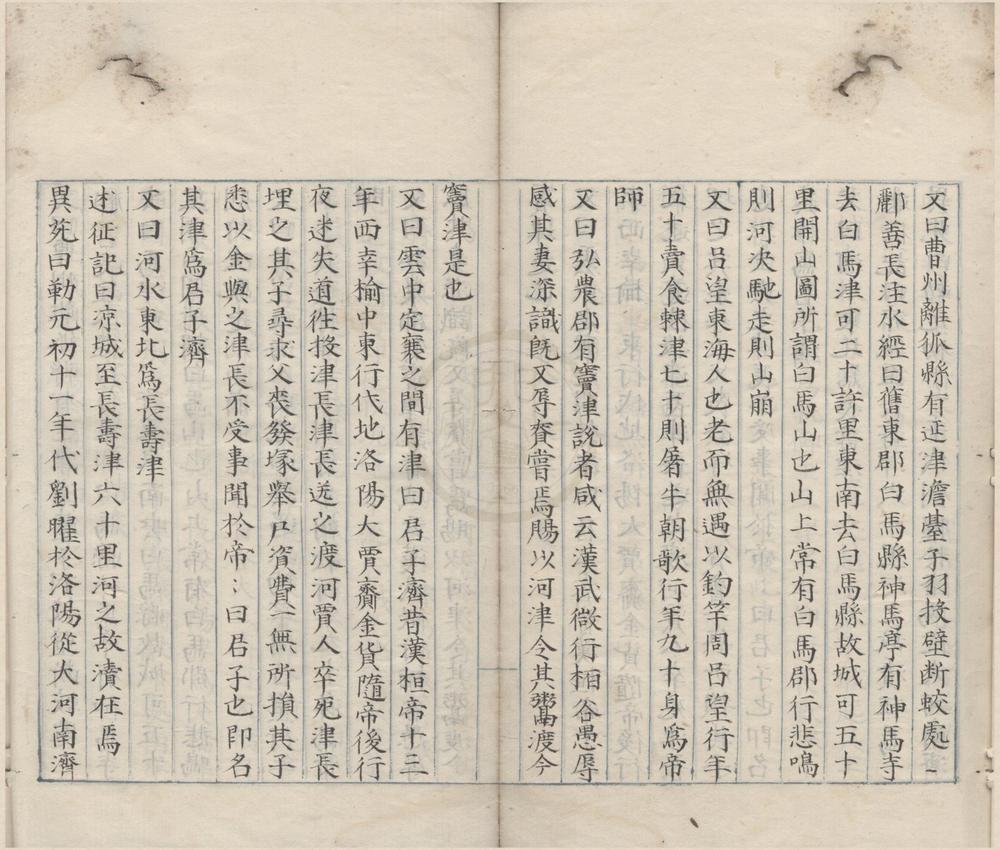 又曰曹州離狐縣有延津澹臺子羽投璧斷蛟處
酈善長注水經曰舊東郡白馬縣神馬亭有神馬寺
去白馬津可二十許里東南去白馬縣故城可五十
里開山圖所謂白馬山也山上常有白馬郡行悲鳴
則河决馳走則山崩
又曰吕望東海人也老而無遇以釣竿周吕望行年
五十賣食棘津七十則屠牛朝歌行年九十身為帝
師
又曰弘農郡有竇津說者咸云漢武微行栢谷愚辱
感其妻深識既又辱賚嘗焉賜以河津令其鬻渡今
竇津是也
又曰雲中定襄之間有津曰君子濟昔漢桓帝十三
年西幸榆中東行代地洛陽大賈齎金貨隨帝後行
夜迷失道徃投津長津長送之渡河賈人卒死津長
埋之其子尋求父喪發塚舉尸資費一無所損其子
悉以金與之津長不受事聞於帝:曰君子也即名
其津為君子濟
又曰河水東北為長壽津
述征記曰凉城至長壽津六十里河之故瀆在焉
異苑曰勒元初十一年代劉曜於洛陽從大河南濟